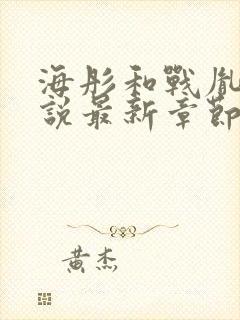 海彤和戰胤
說最新章節
黃杰